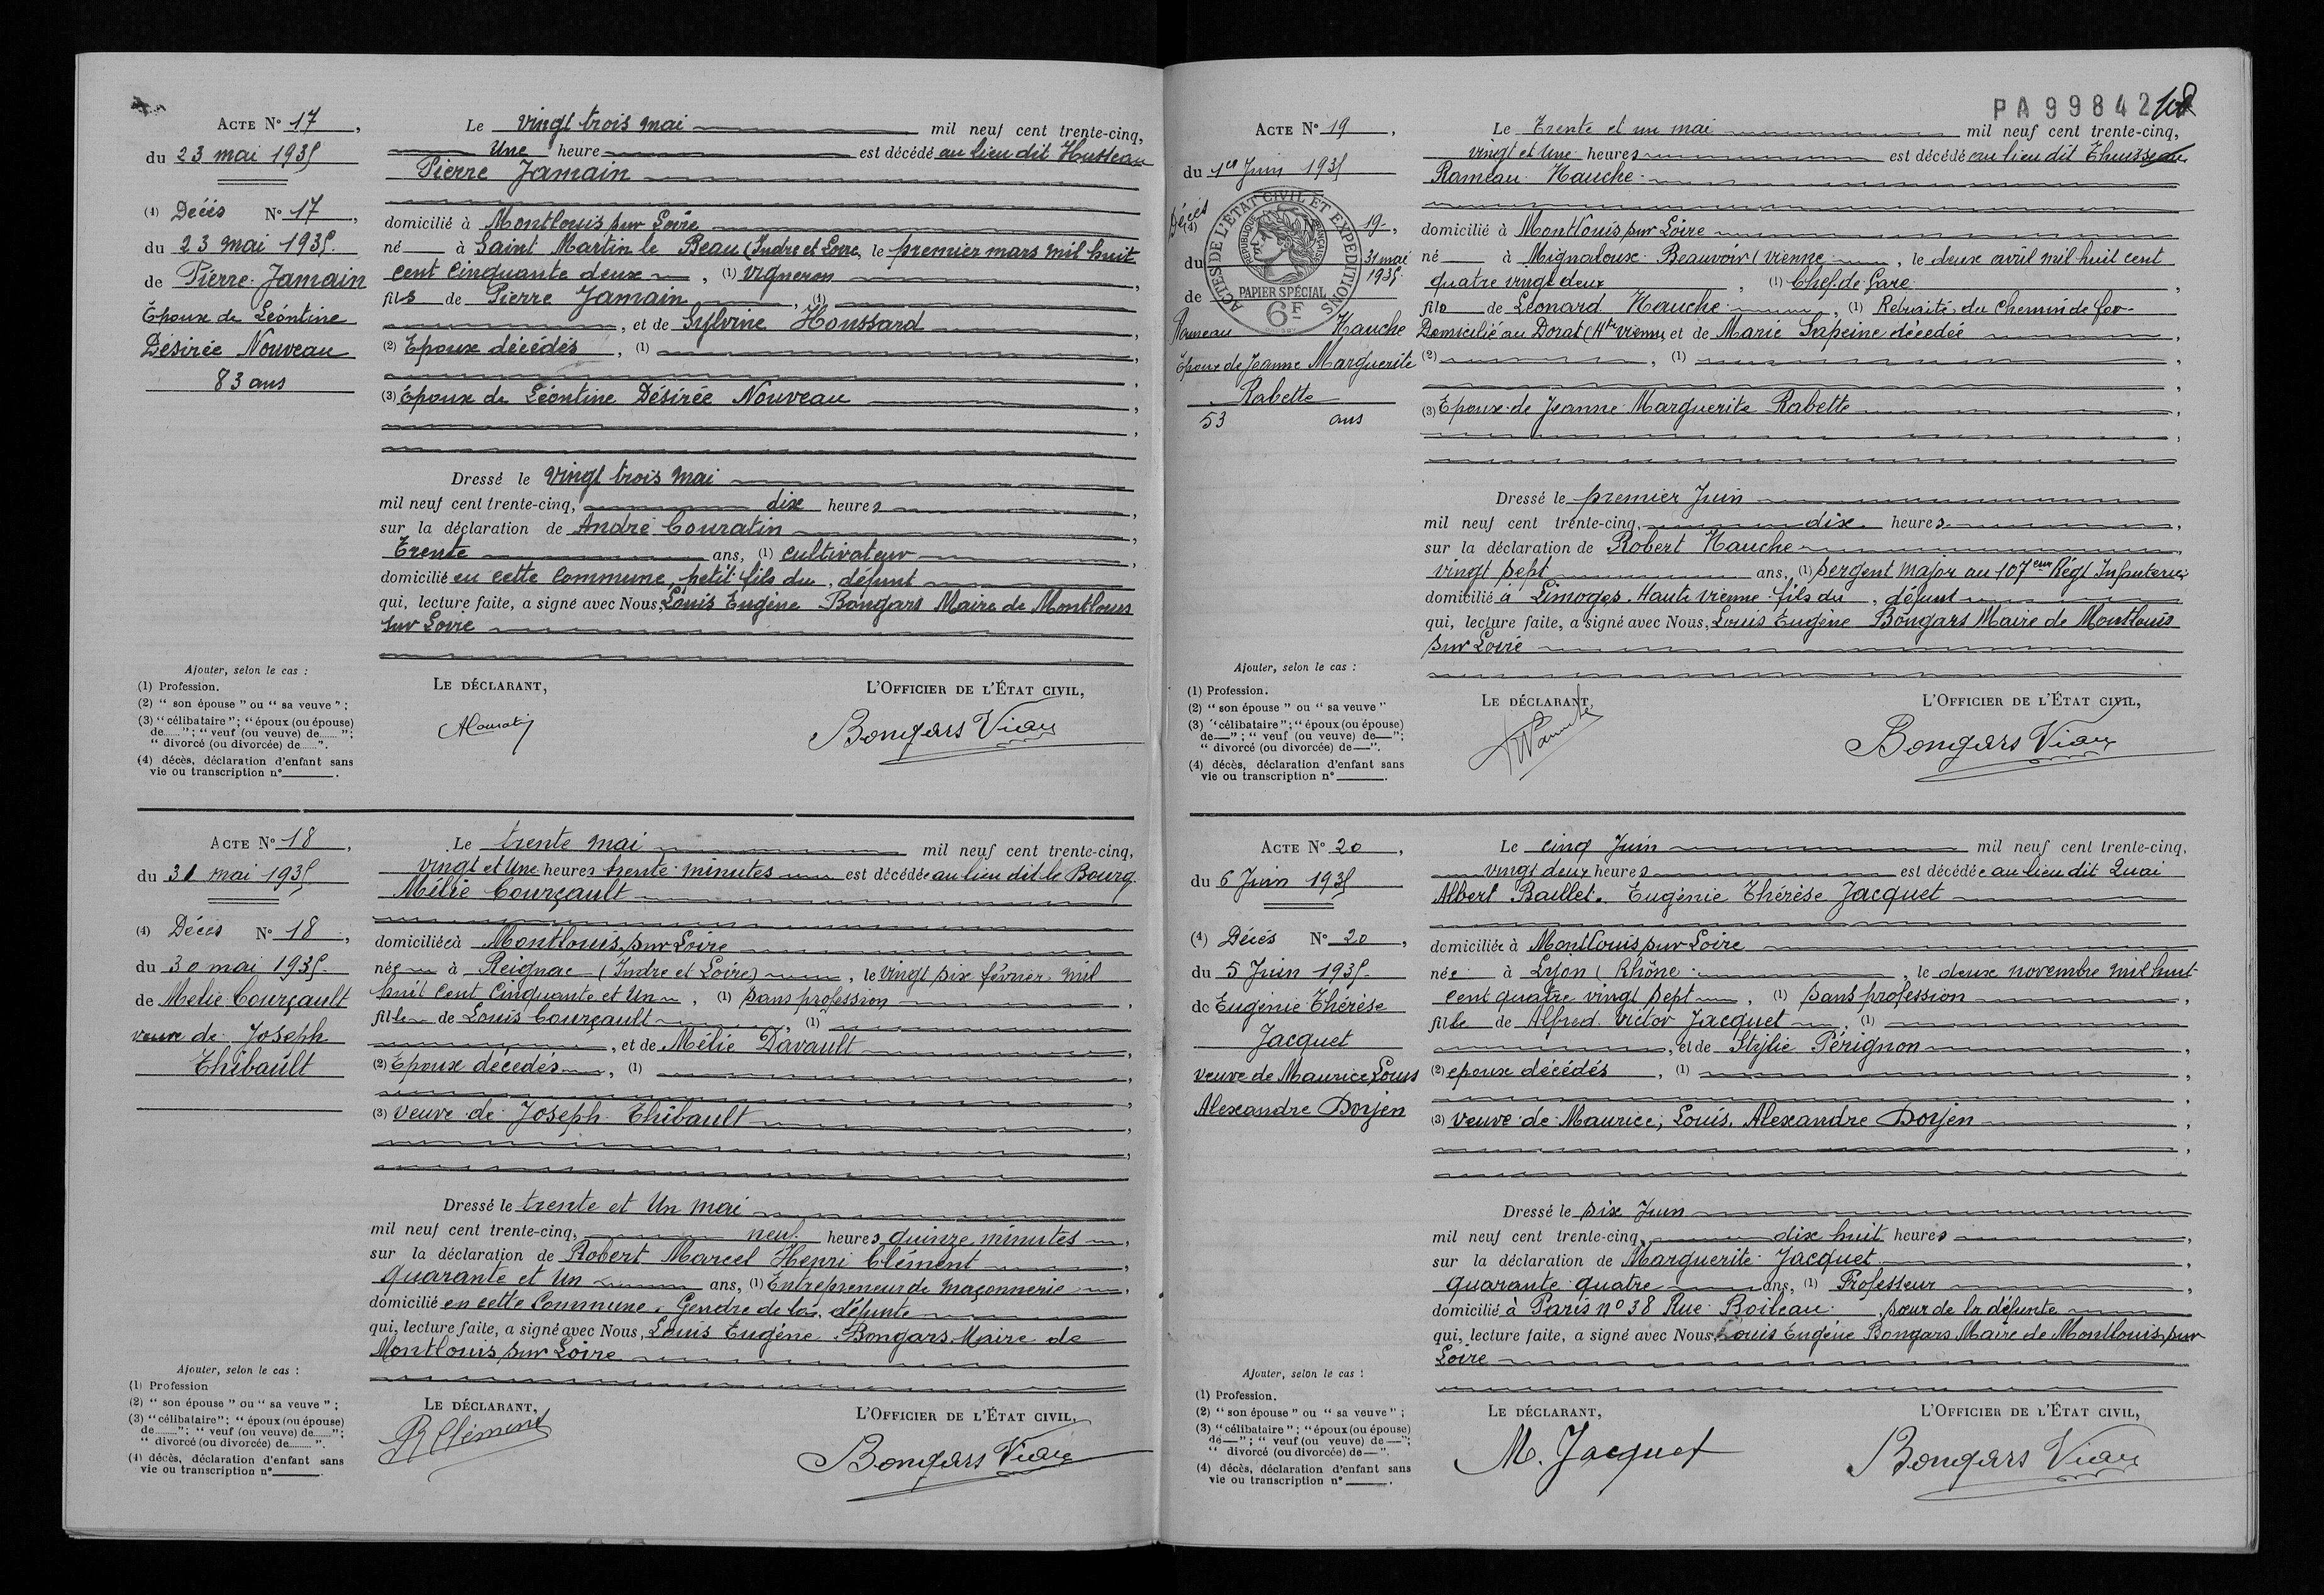 ACTE N° 17,
du 23 mai 1935
(4) Décès N° 17,
du 23 mai 1935.
de Pierre Jamain
Époux de Léontine
Désirée Nouveau
83 ans
Le vingt trois mai mil neuf cent trente-cinq,
Une heure est décédé au lieu dit Husseau
Pierre Jamain
domicilié à Montlouis sur Loire
né à Saint Martin le Beau (Indre et Loire, le premier mars mil huit
cent cinquante deux, (1) vigneron,
fils de Pierre Jamain, (1)
, et de Sylvine Houssard
(2) Epoux décédés, (1),
(3) Epoux de Léontine Désirée Nouveau,
Dressé le vingt trois mai
mil neuf cent trente-cinq, dix heures,
sur la déclaration de André Couratin,
Trente ans, (1) cultivateur
domicilié en cette commune, petit fils du défunt
qui, lecture faite, a signé avec Nous, Louis Eugène Bongars Maire de Montlouis
sur Loire
Ajouter, selon le cas :
(1) Profession.
(2) “ son épouse ” ou “ sa veuve ” ;
(3) “ célibataire ” ; “ époux (ou épouse)
de...... ” ; “ veuf (ou veuve) de...... ” ;
“ divorcé (ou divorcée) de...... ”.
(4) décès, déclaration d'enfant sans
vie ou transcription n° .
LE DÉCLARANT,
L'OFFICIER DE L'ÉTAT CIVIL,
Bongars Viau
ACTE N° 18,
du 31 mai 1935
(4) Décès N° 18,
du 30 mai 1935.
de Mélie Courçault
veuve de Joseph
Thibault
Le trente mai mil neuf cent trente-cinq,
vingt et Une heures trente minutes est décédée au lieu dit le Bourg
Mélie Courçault
domiciliée à Montlouis sur Loire
née à Reignac (Indre et Loire), le vingt six février mil
huit cent cinquante et Un, (1) sans profession,
fille de Louis Courçault, (1)
, et de Mélie Davault,
(2) Epoux décédés, (1),
(3) veuve de Joseph Thibault,
Dressé le trente et Un mai
mil neuf cent trente-cinq, neuf heures quinze minutes,
sur la déclaration de Robert Marcel Henri Clément,
quarante et Un ans, (1) Entrepreneur de maçonnerie,
domicilié en cette commune, Gendre de la défunte
qui, lecture faite, a signé avec Nous, Louis Eugène Bongars Maire de
Montlouis sur Loire
Ajouter, selon le cas :
(1) Profession
(2) “ son épouse ” ou “ sa veuve ” ;
(3) “ célibataire ” ; “ époux (ou épouse)
de...... ” ; “ veuf (ou veuve) de...... ” ;
“ divorcé (ou divorcée) de...... ”.
(4) décès, déclaration d'enfant sans
vie ou transcription n° .
LE DÉCLARANT,
R Clément
L'OFFICIER DE L'ÉTAT CIVIL,
Bongars Viau
PA99842
ACTE N° 19,
du 1er Juin 1935
Décès
(4) N° 19,
du 31 mai
1935.
de
Rameau Nauche
Epoux de Jeanne Marguerite
Rabette
53 ans
ACTES DE L'ÉTAT CIVIL ET EXPÉDITIONS
RÉPUBLIQUE FRANÇAISE
PAPIER SPÉCIAL
6F
Le Trente et un mai mil neuf cent trente-cinq,
vingt et Une heures est décédé au lieu dit Thuisseau
Rameau Nauche
domicilié à Montlouis sur Loire
né à Mignaloux Beauvoir (Vienne, le deux avril mil huit cent
quatre vingt deux, (1) Chef de Gare,
fils de Léonard Nauche, (1) Retraité du Chemin de fer
Domicilié au Dorat (Hte Vienne, et de Marie Lapeine décédée,
(2), (1),
(3) Epoux de Jeanne Marguerite Rabette,
Dressé le premier Juin
mil neuf cent trente-cinq, dix heures,
sur la déclaration de Robert Nauche,
vingt sept ans, (1) sergent major au 107eme Régt Infanterie
domicilié à Limoges Haute Vienne fils du défunt
qui, lecture faite, a signé avec Nous, Louis Eugène Bongars Maire de Montlouis
sur Loire
Ajouter, selon le cas :
(1) Profession.
(2) “ son épouse ” ou “ sa veuve ”
(3) “ célibataire ” ; “ époux (ou épouse)
de — ” ; “ veuf (ou veuve) de — ” ;
“ divorcé (ou divorcée) de — ”.
(4) décès, déclaration d'enfant sans
vie ou transcription n° .
LE DÉCLARANT,
L'OFFICIER DE L'ÉTAT CIVIL,
Bongars Viau
ACTE N° 20,
du 6 Juin 1935
(4) Décès N° 20,
du 5 Juin 1935.
de Eugénie Thérèse
Jacquet
veuve de Maurice Louis
Alexandre Dorjen
Le cinq Juin mil neuf cent trente-cinq,
vingt deux heures est décédée au lieu dit Quai
Albert Baillet. Eugénie Thérèse Jacquet
domiciliée à Montlouis sur Loire
née à Lyon (Rhône, le deux novembre mil huit
cent quatre vingt sept, (1) sans profession,
fille de Alfred Victor Jacquet, (1)
, et de Stylie Pérignon,
(2) epoux décédés, (1),
(3) veuve de Maurice, Louis, Alexandre Dorjen,
Dressé le six Juin
mil neuf cent trente-cinq, dix huit heures,
sur la déclaration de Marguerite Jacquet,
quarante quatre ans, (1) Professeur,
domicilié à Paris n° 38 Rue Boileau, sœur de la défunte
qui, lecture faite, a signé avec Nous, Louis Eugène Bongars Maire de Montlouis sur
Loire
Ajouter, selon le cas :
(1) Profession.
(2) “ son épouse ” ou “ sa veuve ” ;
(3) “ célibataire ” ; “ époux (ou épouse)
de — ” ; “ veuf (ou veuve) de — ” ;
“ divorcé (ou divorcée) de — ”.
(4) décès, déclaration d'enfant sans
vie ou transcription n° .
LE DÉCLARANT,
M. Jacquet
L'OFFICIER DE L'ÉTAT CIVIL,
Bongars Viau